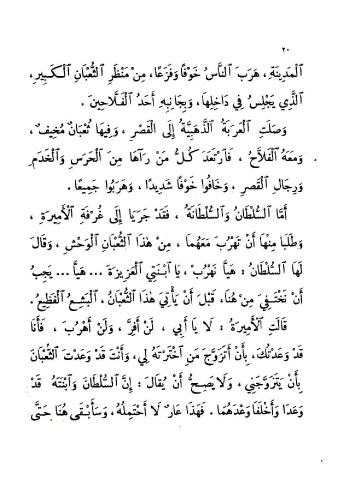 ٢٠
ٱلْمَدِينَةِ، هَرَبَ ٱلنَّاسُ خَوْفًا وَفَزَعًا، مِنْ مَنْظَرِ ٱلثُّعْبَانِ ٱلْكَبِيرِ،
ٱلَّذِي يَجْلِسُ فِي دَاخِلِهَا، وَبِجَانِبِهِ أَحَدُ ٱلْفَلَّاحِينَ.
وَصَلَتِ ٱلْعَرَبَةُ ٱلذَّهَبِيَّةُ إِلَى ٱلْقَصْرِ، وَفِيهَا ثُعْبَانٌ مُخِيفٌ،
وَمَعَهُ ٱلْفَلَّاحُ، فَٱرْتَعَدَ كُلُّ مَنْ رَآهَا مِنَ ٱلْحَرَسِ وَٱلْخَدَمِ
وَرِجَالِ ٱلْقَصْرِ، وَخَافُوا خَوْفًا شَدِيدًا، وَهَرَبُوا جَمِيعًا.
أَمَّا ٱلسُّلْطَانُ وَٱلسُّلْطَانَةُ، فَقَدْ جَرَيَا إِلَى غُرْفَةِ ٱلْأَمِيرَةِ،
وَطَلَبَا مِنْهَا أَنْ تَهْرُبَ مَعَهُمَا، مِنْ هٰذَا ٱلثُّعْبَانِ ٱلْوَحْشِ، وَقَالَ
لَهَا ٱلسُّلْطَانُ: هَيَّا نَهْرُبْ، يَا ٱبْنَتِي ٱلْعَزِيزَةَ... هَيَّا... يَجِبُ
أَنْ نَخْتَفِيَ مِنْ هُنَا، قَبْلَ أَنْ يَأْتِيَ هٰذَا ٱلثُّعْبَانُ، ٱلْبَشِعُ ٱلْفَظِيعُ.
قَالَتِ ٱلْأَمِيرَةُ: لَا يَا أَبِي، لَنْ أَفِرَّ، وَلَنْ أَهْرُبَ، فَأَنَا
قَدْ وَعَدْتُكَ، بِأَنْ أَتَزَوَّجَ مَنِ ٱخْتَرْتَهُ لِي، وَأَنْتَ قَدْ وَعَدْتَ ٱلثُّعْبَانَ
بِأَنْ يَتَزَوَّجَنِي، وَلَا يَصِحُّ أَنْ يُقَالَ: إِنَّ ٱلسُّلْطَانَ وَٱبْنَتَهُ قَدْ
وَعَدَا وَأَخْلَفَا وَعْدَهُمَا. فَهٰذَا عَارٌ لَا أَحْتَمِلُهُ، وَسَأَبْقَى هُنَا حَتَّى